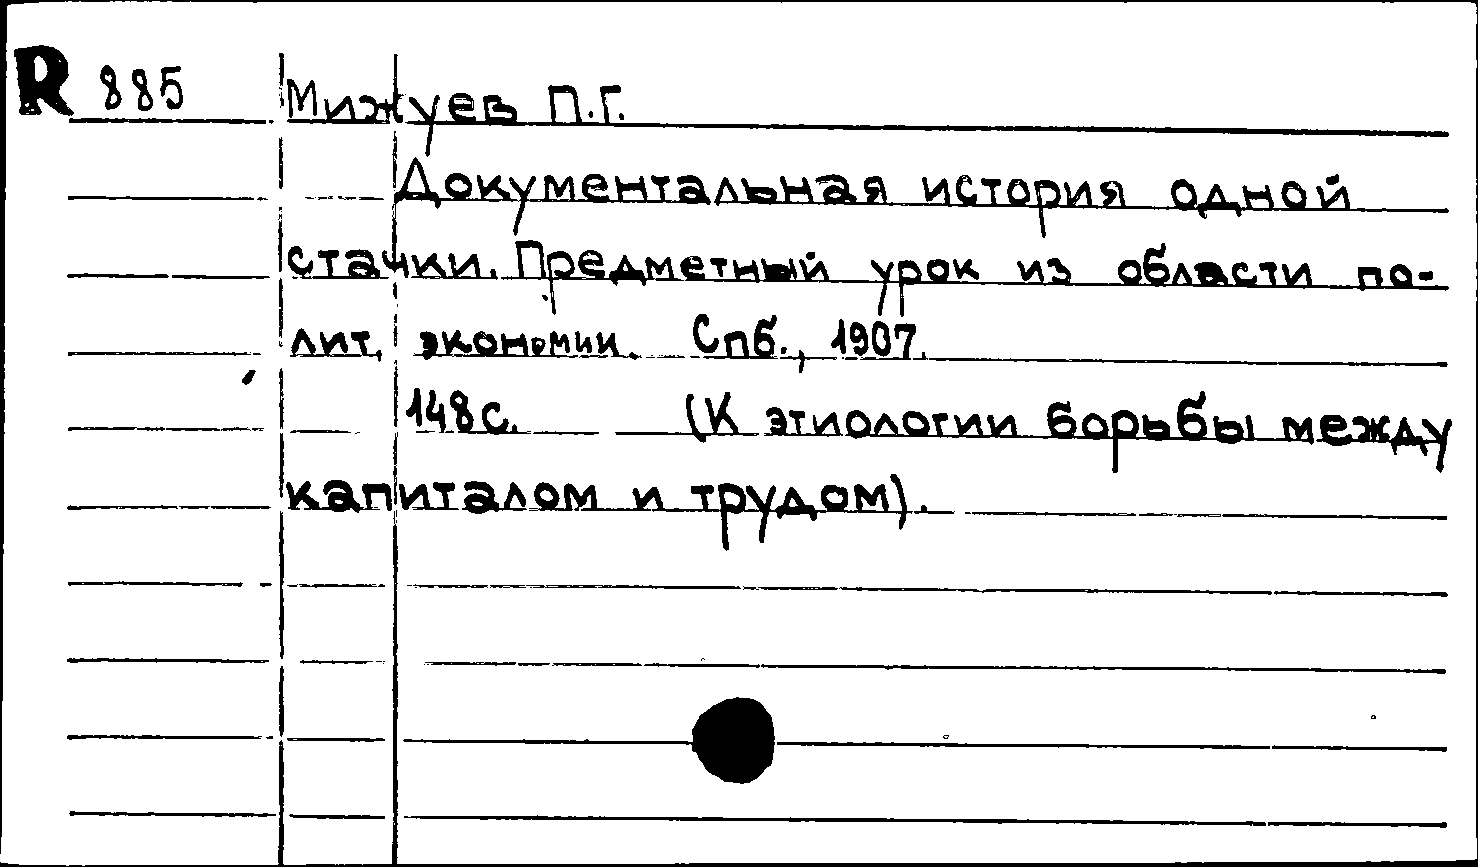 R 885 Мижуев П.Г.
Документальная история одной
стачки. Предметный урок из области по-
лит. экономии. Спб., 1907.
148с. (К этиологии борьбы между
капиталом и трудом).